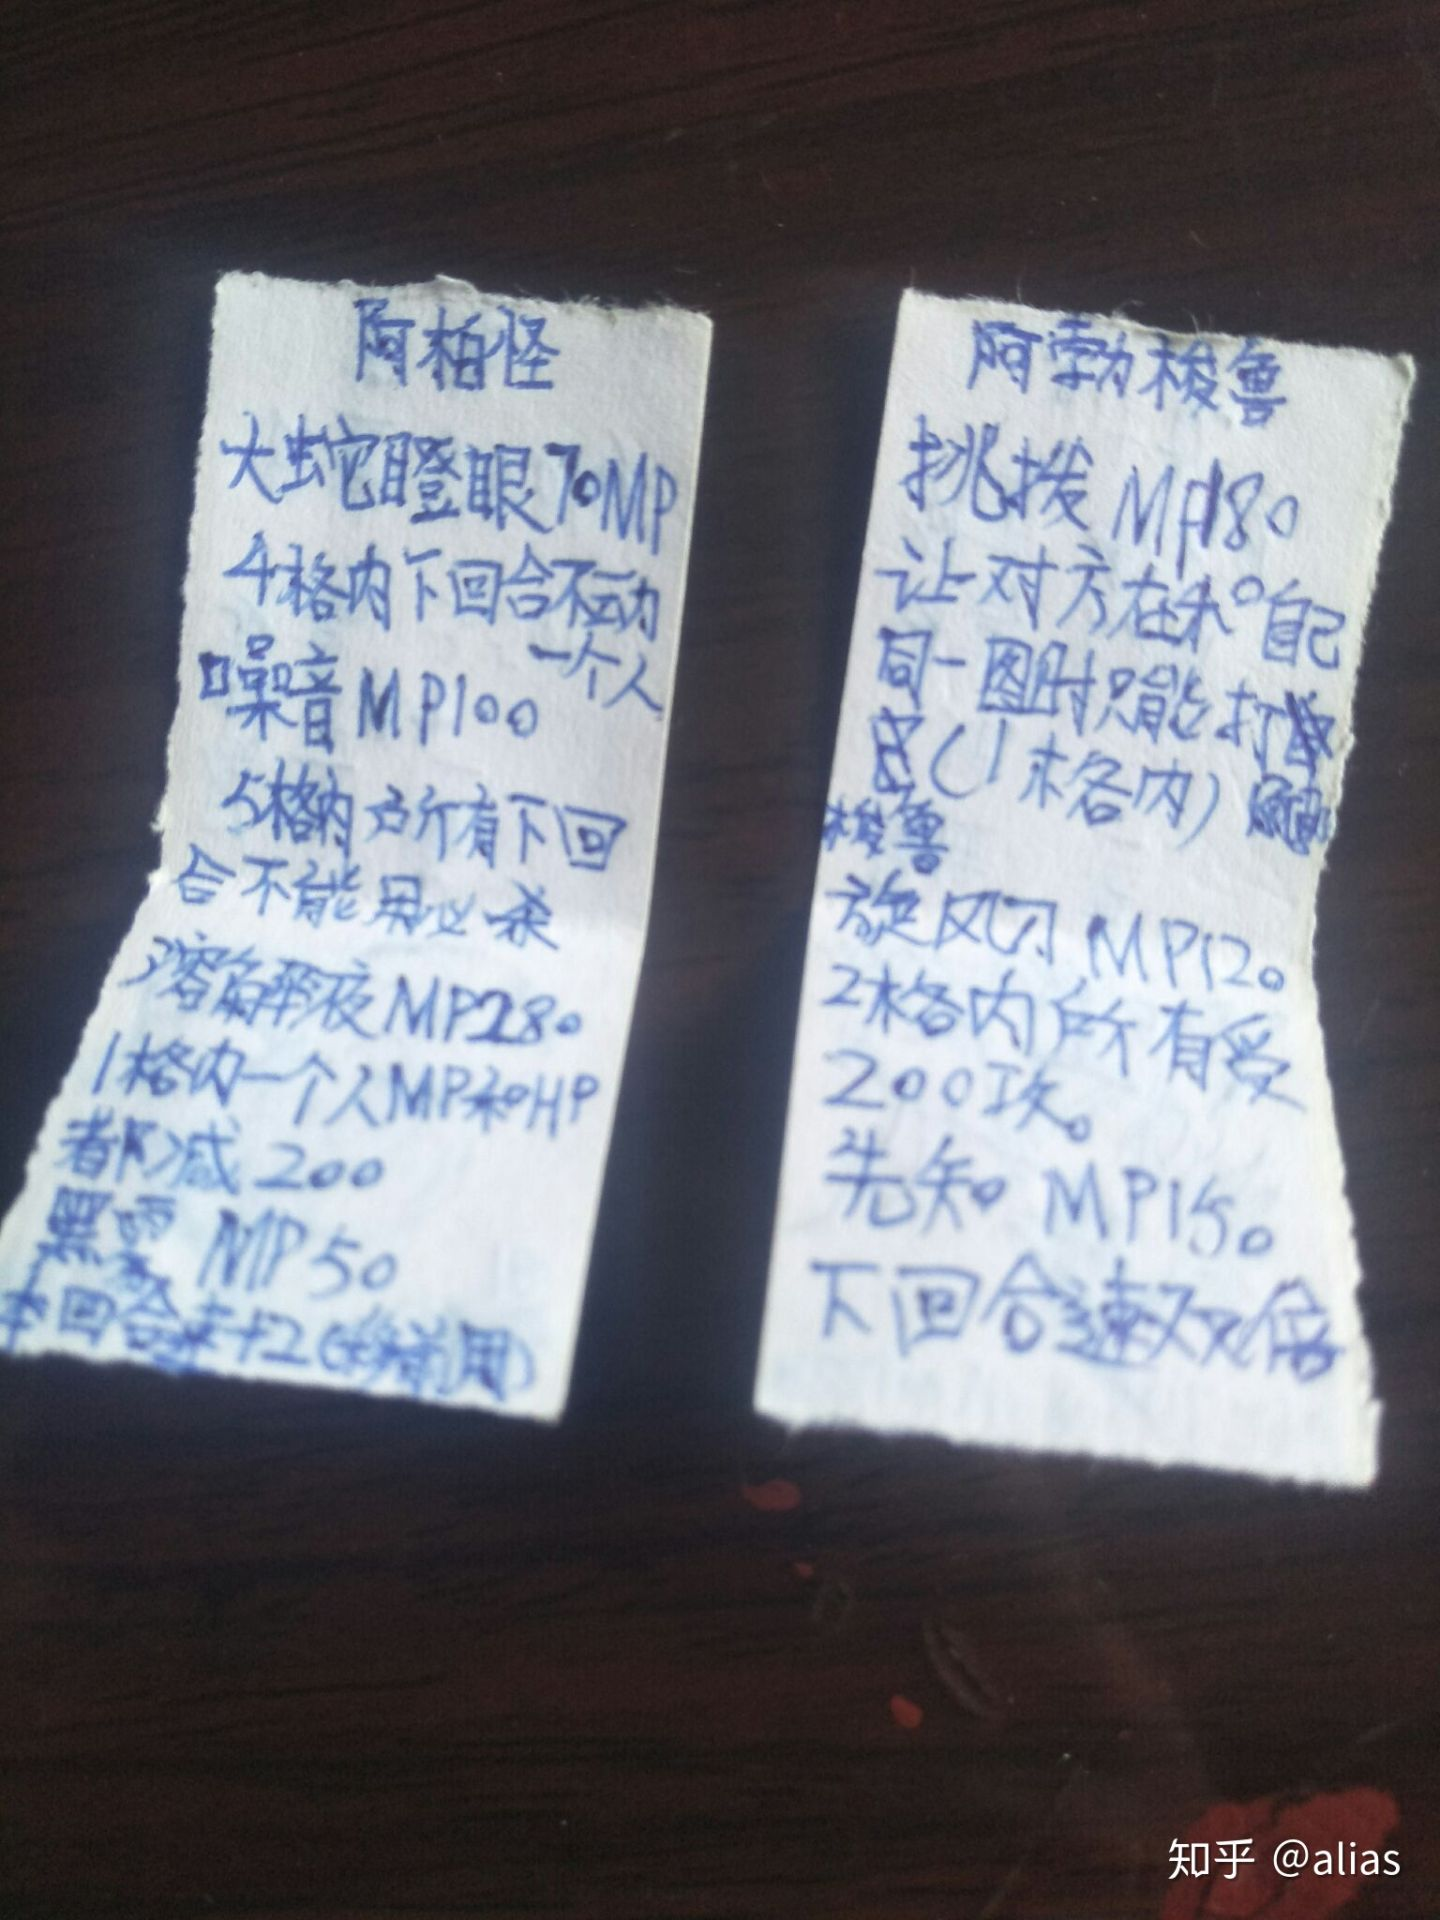 阿柏怪
大蛇瞪眼70MP
4格内下回合不动
一个人
噪音MP100
5格内所有下回
合不能用必杀
溶解液MP280
1格内一个人MP和HP
都减200
黑雾 MP50
本回合 +2(
阿勃梭鲁
挑拨MP180
让对方在和自己
同一图时只能打
(1格内)
梭鲁
旋风刀 MP120
2格内所有受
200攻。
先知 MP150
下回合速双倍
知乎 @alias